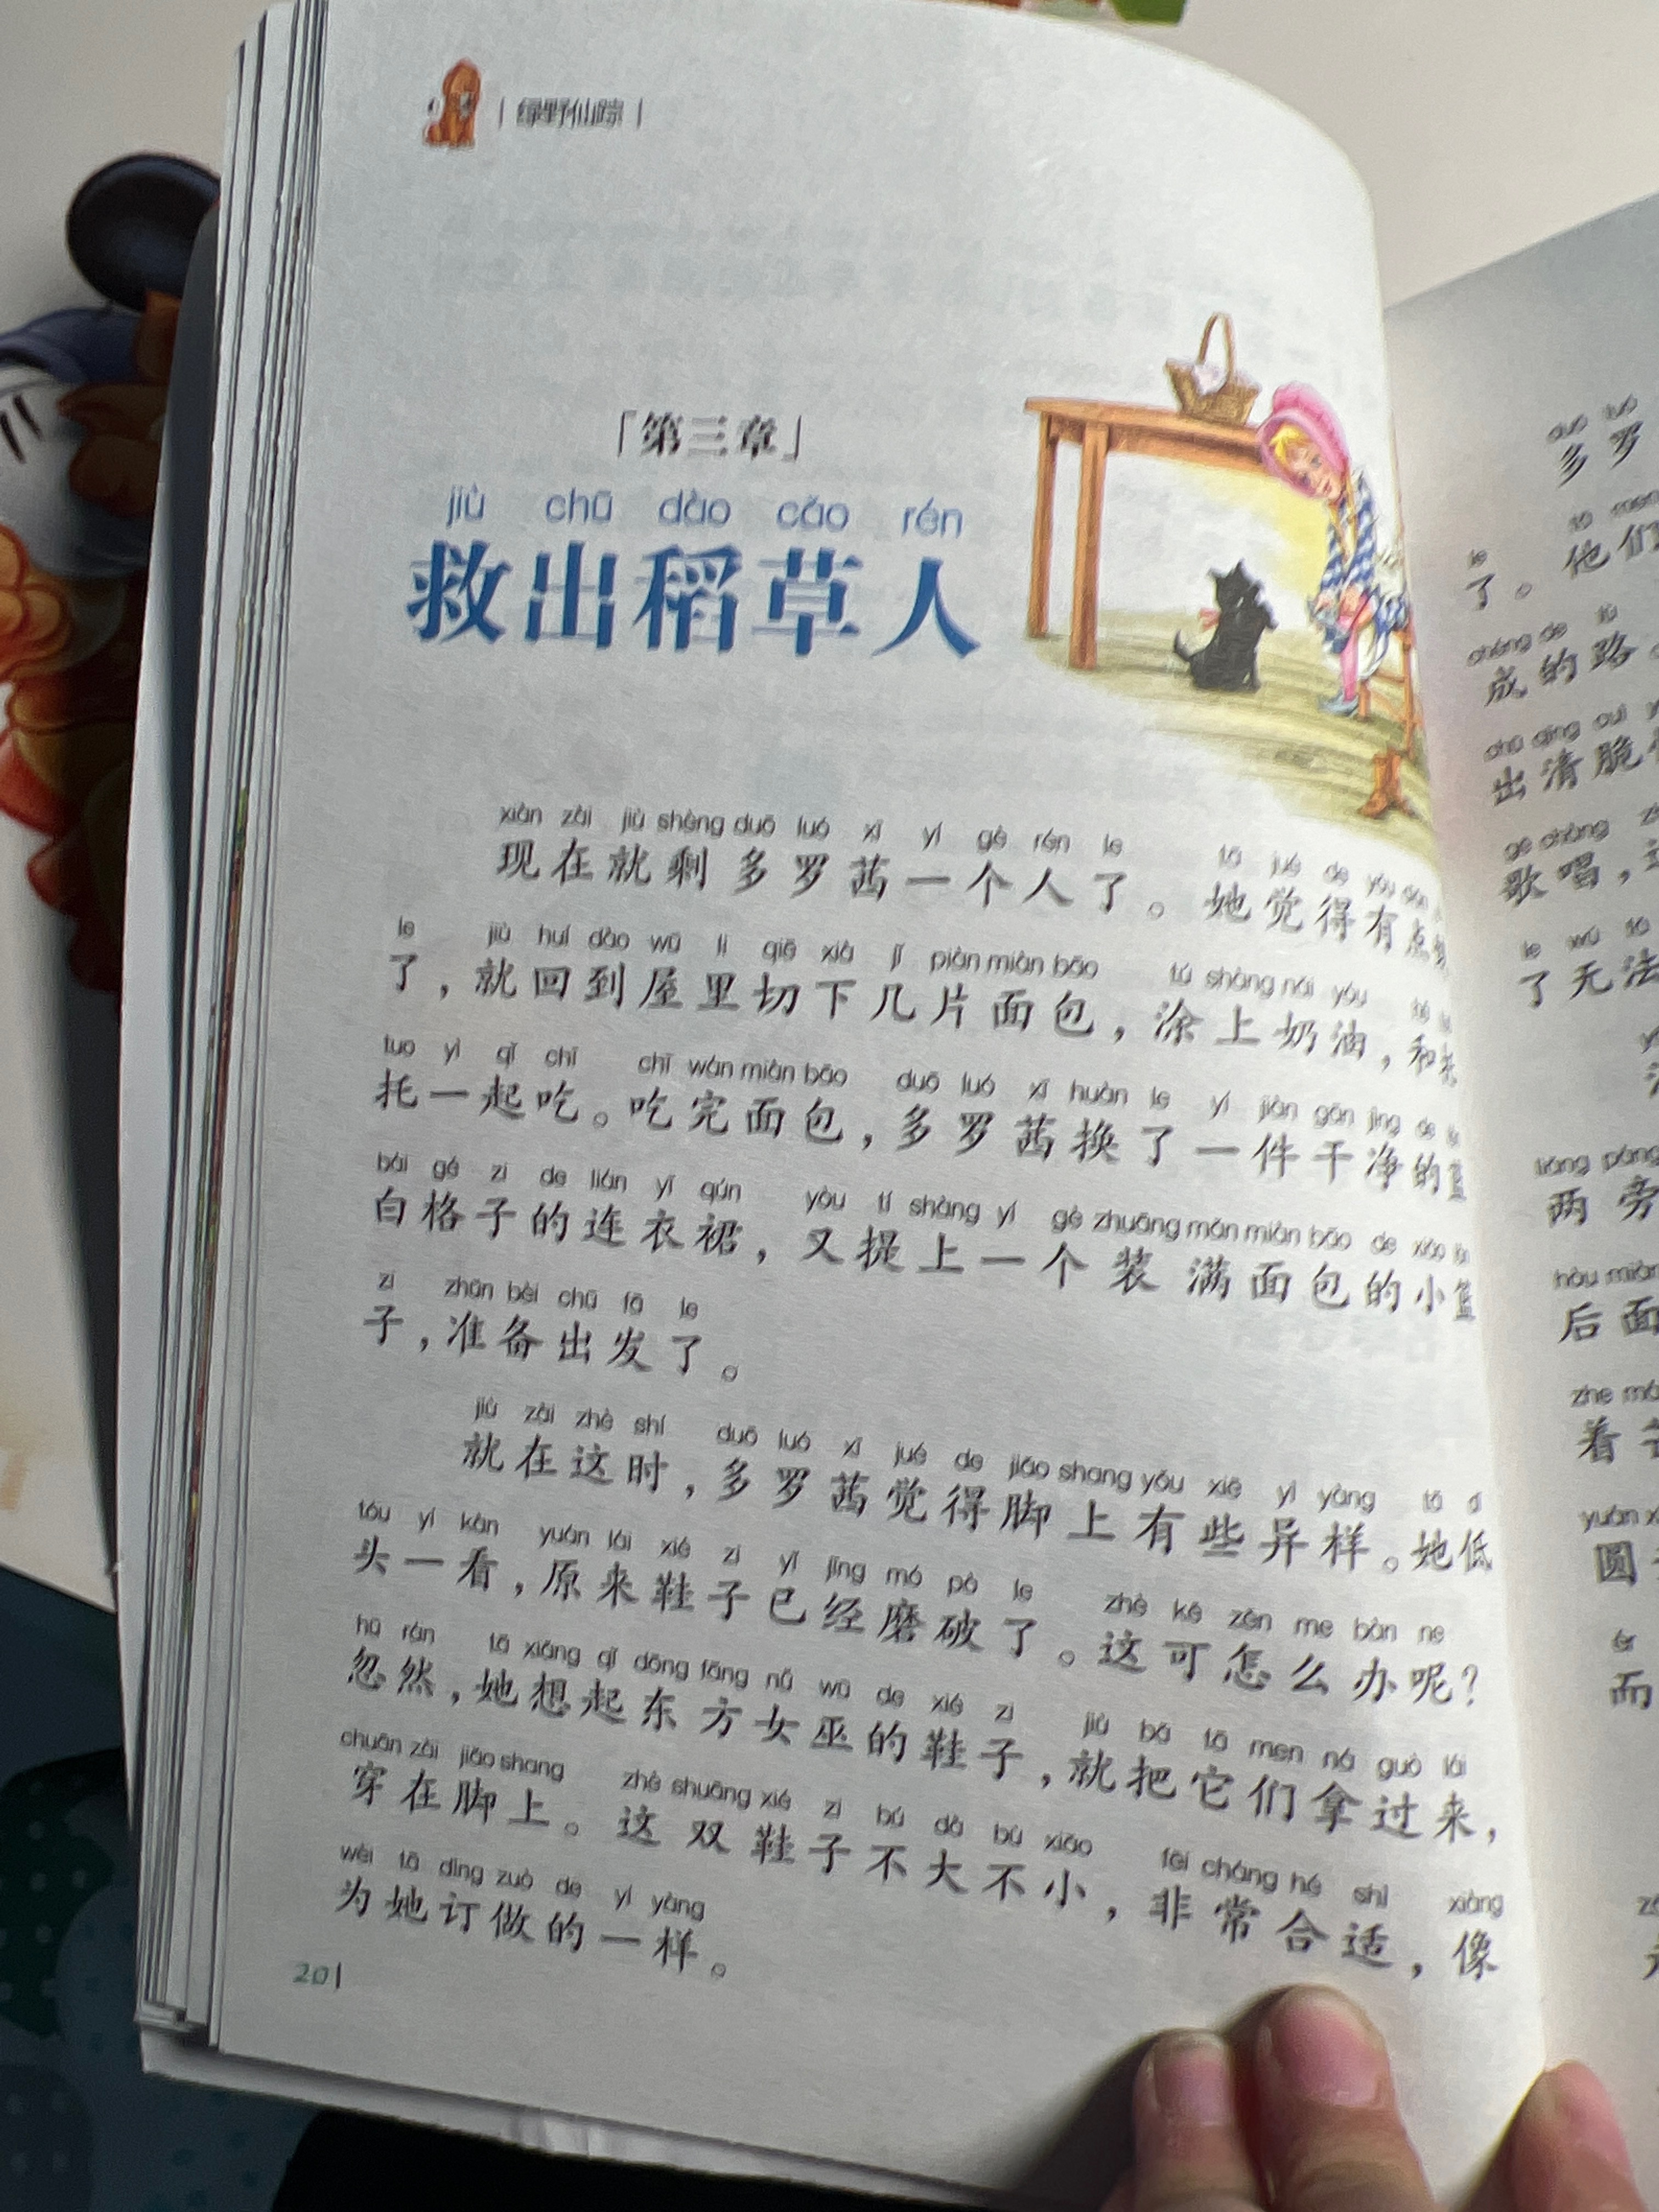 绿野仙踪
「第三章」
jiù chū dào cǎo rén
救出稻草人
xiàn zài jiù shèng duō luó xī yí gè rén le tā jué de yǒu diǎn
现在就剩多罗茜一个人了。她觉得有点
le jiù huí dào wū li qiē xià jǐ piàn miàn bāo tú shàng nǎi yóu
了，就回到屋里切下几片面包，涂上奶油，和
tuō yì qǐ chī chī wán miàn bāo duō luó xī huàn le yí jiàn gān jìng de
托一起吃。吃完面包，多罗茜换了一件干净的蓝
bái gé zi de lián yī qún yòu tí shàng yí gè zhuāng mǎn miàn bāo de xiǎo
白格子的连衣裙，又提上一个装满面包的小篮
zi zhǔn bèi chū fā le
子，准备出发了。
jiù zài zhè shí duō luó xī jué de jiǎo shang yǒu xiē yì yàng tā
就在这时，多罗茜觉得脚上有些异样。她低
tóu yí kàn yuán lái xié zi yǐ jīng mó pò le zhè kě zěn me bàn ne
头一看，原来鞋子已经磨破了。这可怎么办呢？
hū rán tā xiǎng qǐ dōng fāng nǚ wū de xié zi jiù bǎ tā men ná guò lái
忽然，她想起东方女巫的鞋子，就把它们拿过来，
chuān zài jiǎo shang zhè shuāng xié zi bú dà bù xiǎo fēi cháng hé shì xiàng
穿在脚上。这双鞋子不大不小，非常合适，像
wèi tā dìng zuò de yí yàng
为她订做的一样。
20
duō luó
多罗
le tā men
了。他们
chéng de lù
成的路
chū qīng cuì
出清脆
gē chàng
歌唱，
le wú fǎ
了无法
liǎng páng
两旁
hòu miàn
后面
zhe
着
yuán
圆
ér
而